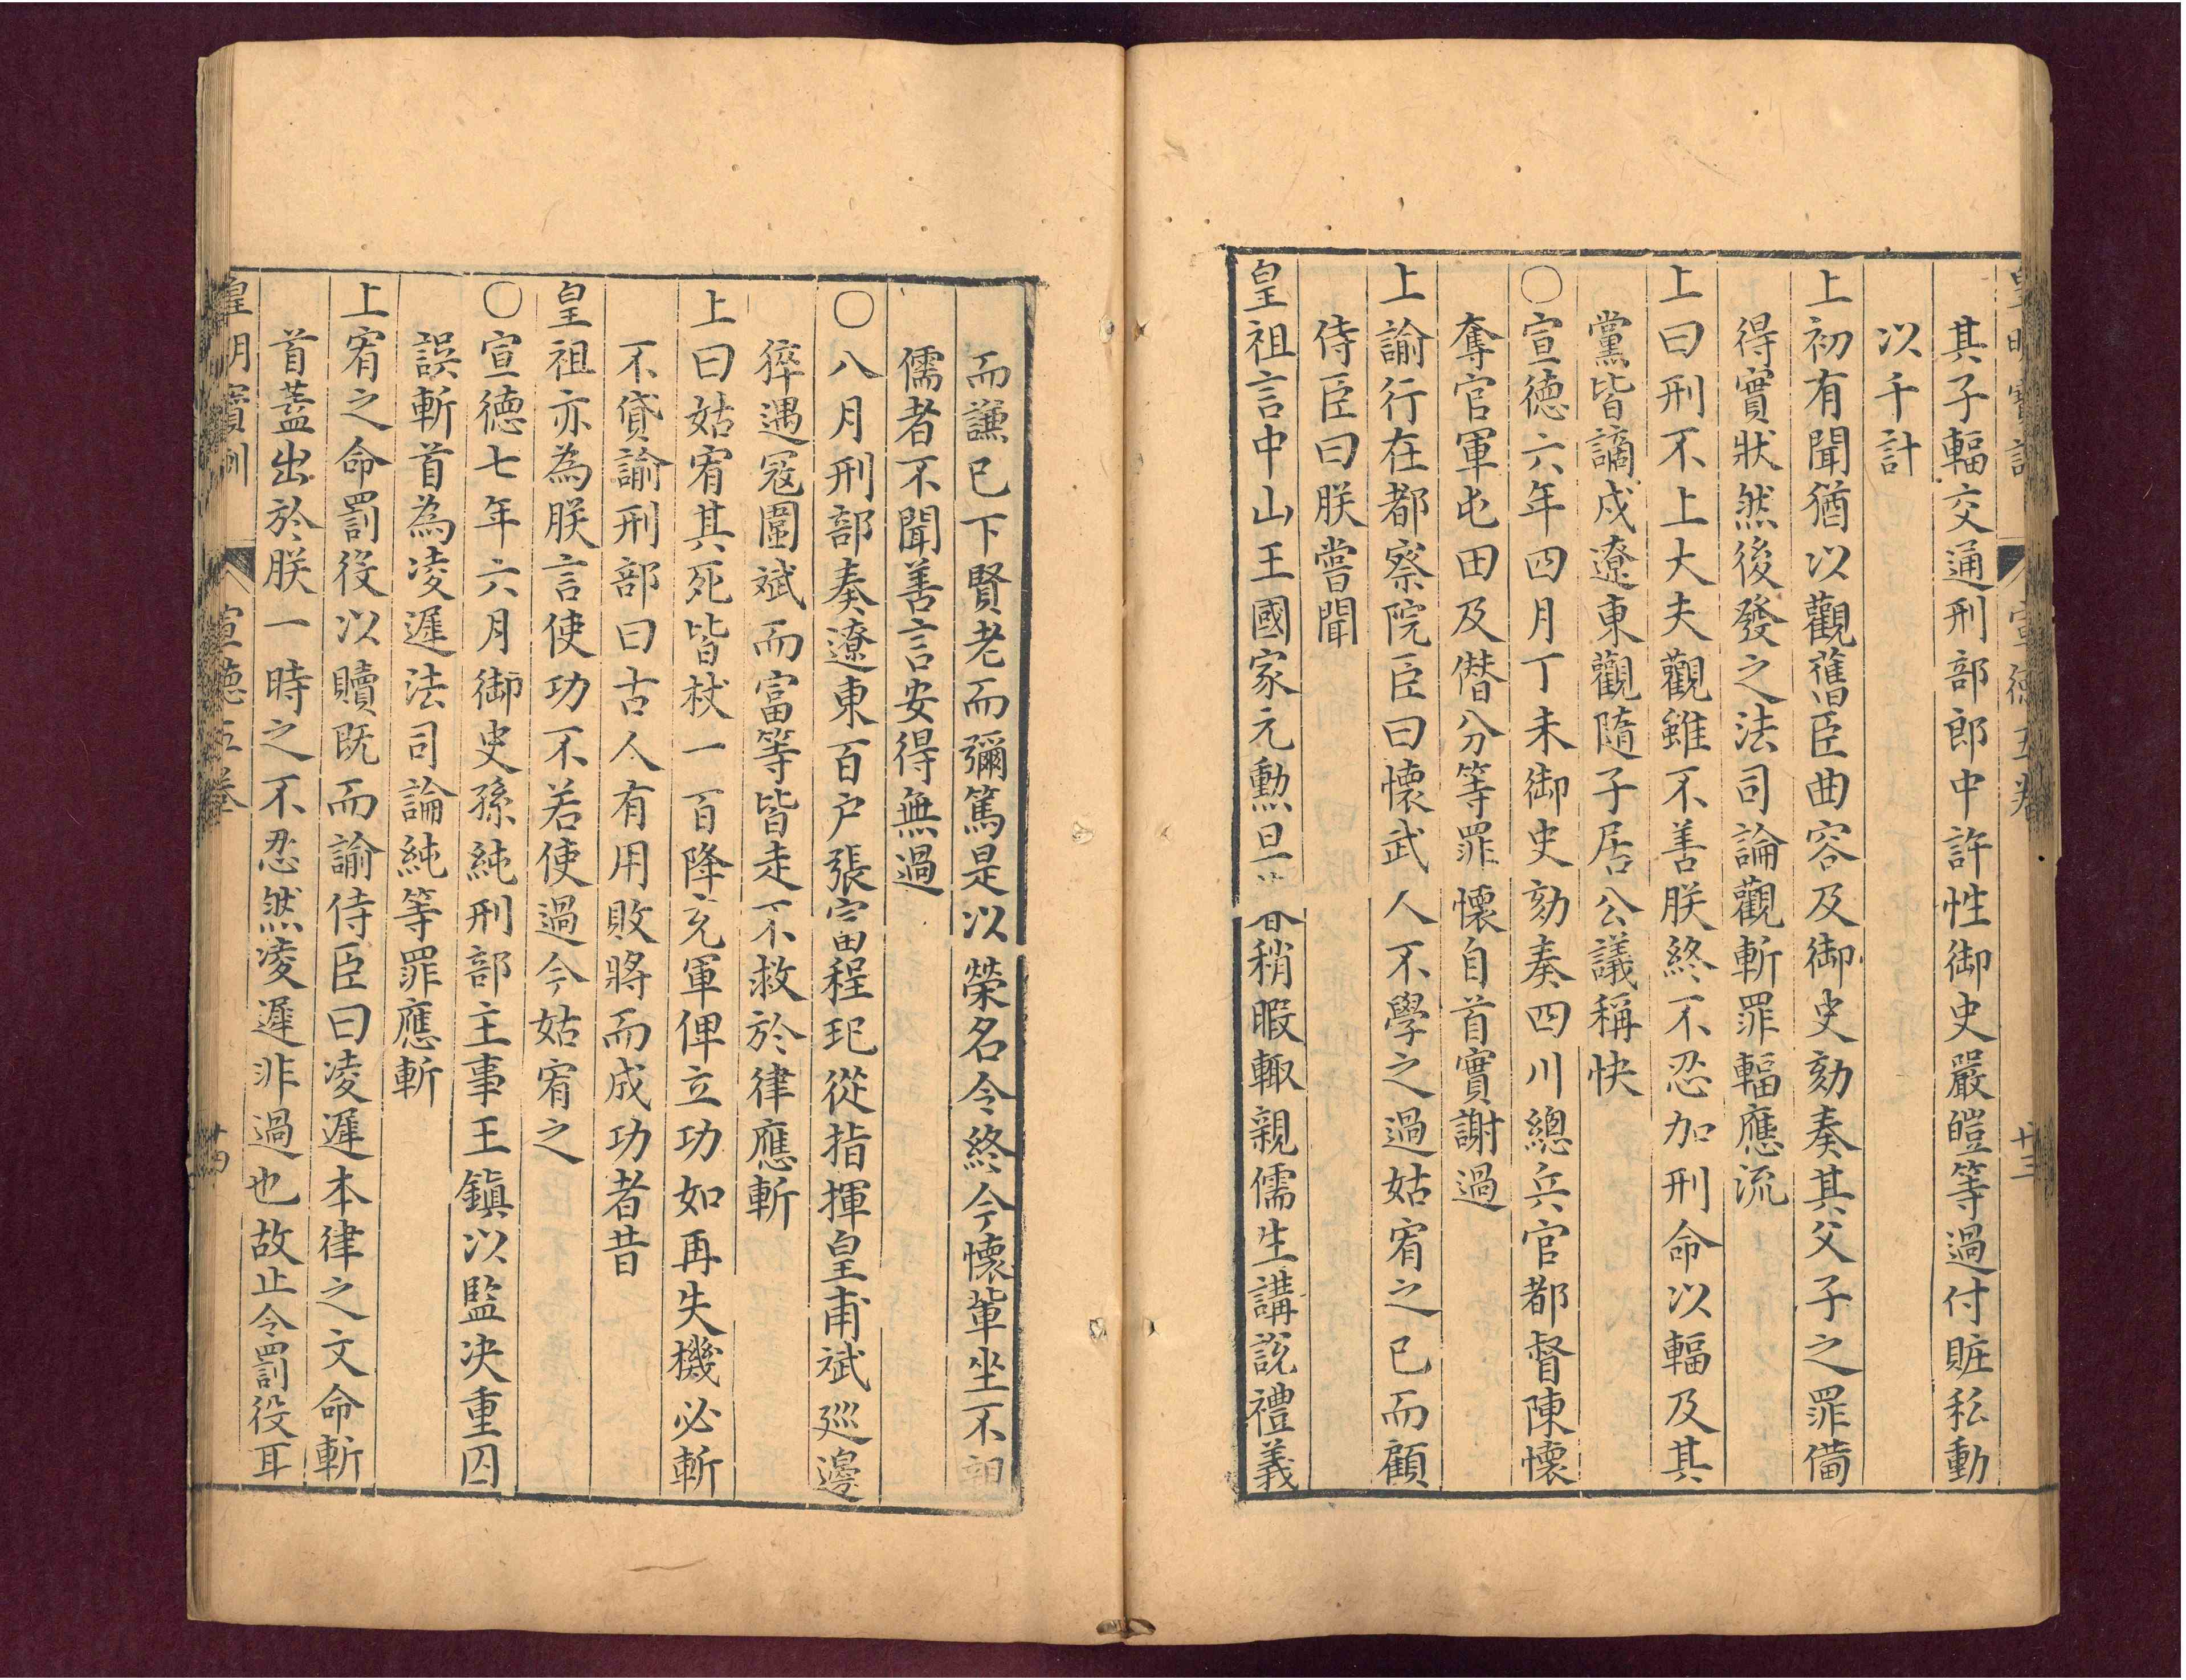 其子輻交通刑部郎中許性御史嚴皚等過付賍私動
以千計
上初有聞猶以觀舊臣曲容及御史劾奏其父子之罪備
得實狀然後發之法司論觀斬罪輻應流
上曰刑不上大夫觀雖不善朕終不忍加刑命以輻及其
黨皆謫戍遼東觀隨子居公議稱快
○宣德六年四月丁未御史劾奏四川總兵官都督陳懷
奪官軍屯田及僣分等罪懷自首實謝過
上諭行在都察院臣曰懷武人不學之過姑宥之已而顧
侍臣曰朕嘗聞
皇祖言中山王國家元勳旦稍暇輙親儒生講說禮義
而謙已下賢老而彌篤是以榮名令終今懷軰坐不
儒者不聞善言安得無過
○八月刑部奏遼東百户張富程玘從指揮皇甫斌巡邊
猝遇冦圍斌而富等皆走不救於律應斬
上曰姑宥其死皆杖一百降充軍俾立功如再失機必斬
不貸諭刑部曰古人有用敗將而成功者昔
皇祖亦為朕言使功不若使過今姑宥之
○宣德七年六月御史孫純刑部主事王鎮以監决重囚
誤斬首為凌遲法司論純等罪應斬
上宥之命罰役以贖既而諭侍臣曰凌遲本律之文命斬
首蓋出於朕一時之不忍然凌遲非過也故止令罰役耳
皇明寶訓 宣德五卷 廿四